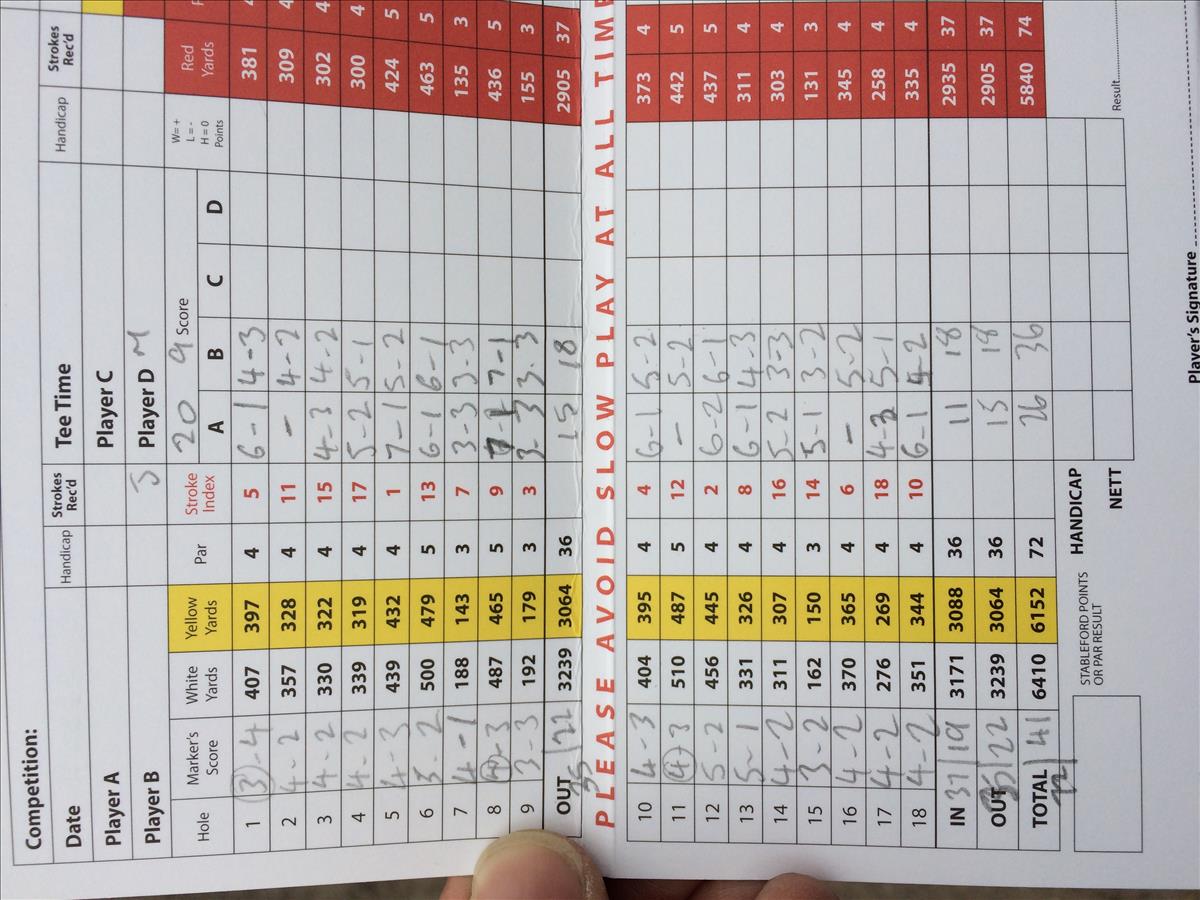 Competition:
Date Handicap Strokes Rec'd Tee Time Handicap Strokes Rec'd
Player A Player C
Player B J Player D M
Hole Marker's Score White Yards Yellow Yards Par Stroke Index 20 9 Score W = + L = - H = 0 Points Red Yards
A B C D
1 (3)-4 407 397 4 5 6-1 4-3 381 4
2 4-2 357 328 4 11 - 4-2 309 4
3 4-2 330 322 4 15 4-3 4-2 302 4
4 4-2 339 319 4 17 5-2 5-1 300 4
5 4-3 439 432 4 1 7-1 5-2 424 5
6 5-2 500 479 5 13 6-1 6-1 463 5
7 4-1 188 143 3 7 3-3 3-3 135 3
8 (4)-3 487 465 5 9 7-1 7-1 436 5
9 3-3 192 179 3 3 3-3 3-3 155 3
OUT 35 | 22 3239 3064 36 15 18 2905 37
PLEASE AVOID SLOW PLAY AT ALL TIME
10 4-3 404 395 4 4 6-1 5-2 373 4
11 (4)-3 510 487 5 12 - 5-2 442 5
12 5-2 456 445 4 2 6-2 6-1 437 5
13 5-1 331 326 4 8 6-1 4-3 311 4
14 4-2 311 307 4 16 5-2 3-3 303 4
15 3-2 162 150 3 14 5-1 3-2 131 3
16 4-2 370 365 4 6 - 5-2 345 4
17 4-2 276 269 4 18 4-3 5-1 258 4
18 4-2 351 344 4 10 6-1 4-2 335 4
IN 37 | 19 3171 3088 36 11 18 2935 37
OUT 35 | 22 3239 3064 36 15 18 2905 37
TOTAL 72 | 41 6410 6152 72 26 36 5840 74
STABLEFORD POINTS OR PAR RESULT HANDICAP
NETT Result
Player's Signature